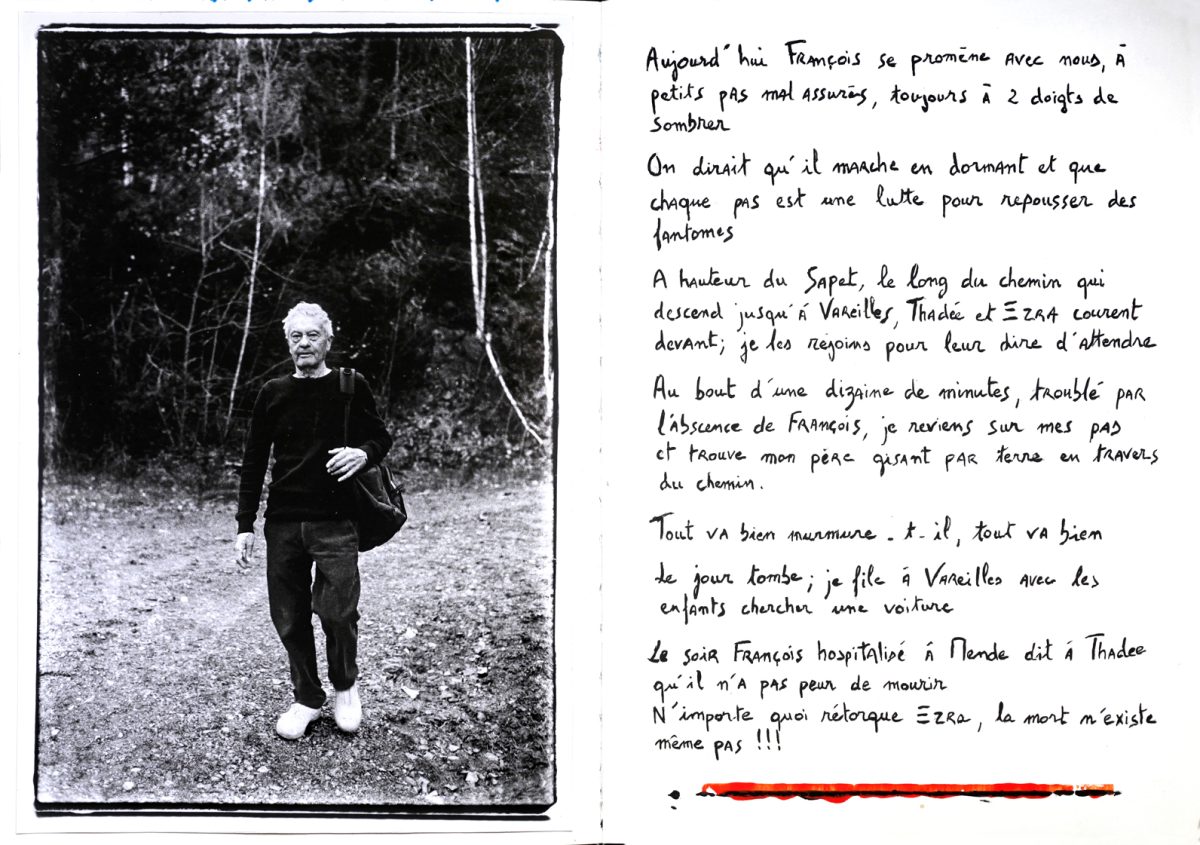 Aujourd'hui François se promène avec nous, à
petits pas mal assurés, toujours à 2 doigts de
sombrer
On dirait qu'il marche en dormant et que
chaque pas est une lutte pour repousser des
fantomes
A hauteur du Sapet, le long du chemin qui
descend jusqu'à Vareilles, Thadée et Ezra courent
devant; je les rejoins pour leur dire d'attendre
Au bout d'une dizaine de minutes, troublé par
l'abscence de François, je reviens sur mes pas
et trouve mon père gisant par terre en travers
du chemin.
Tout va bien murmure-t-il, tout va bien
Le jour tombe; je file à Vareilles avec les
enfants chercher une voiture
Le soir François hospitalisé à Mende dit à Thadee
qu'il n'a pas peur de mourir
N'importe quoi rétorque Ezra, la mort n'existe
même pas !!!